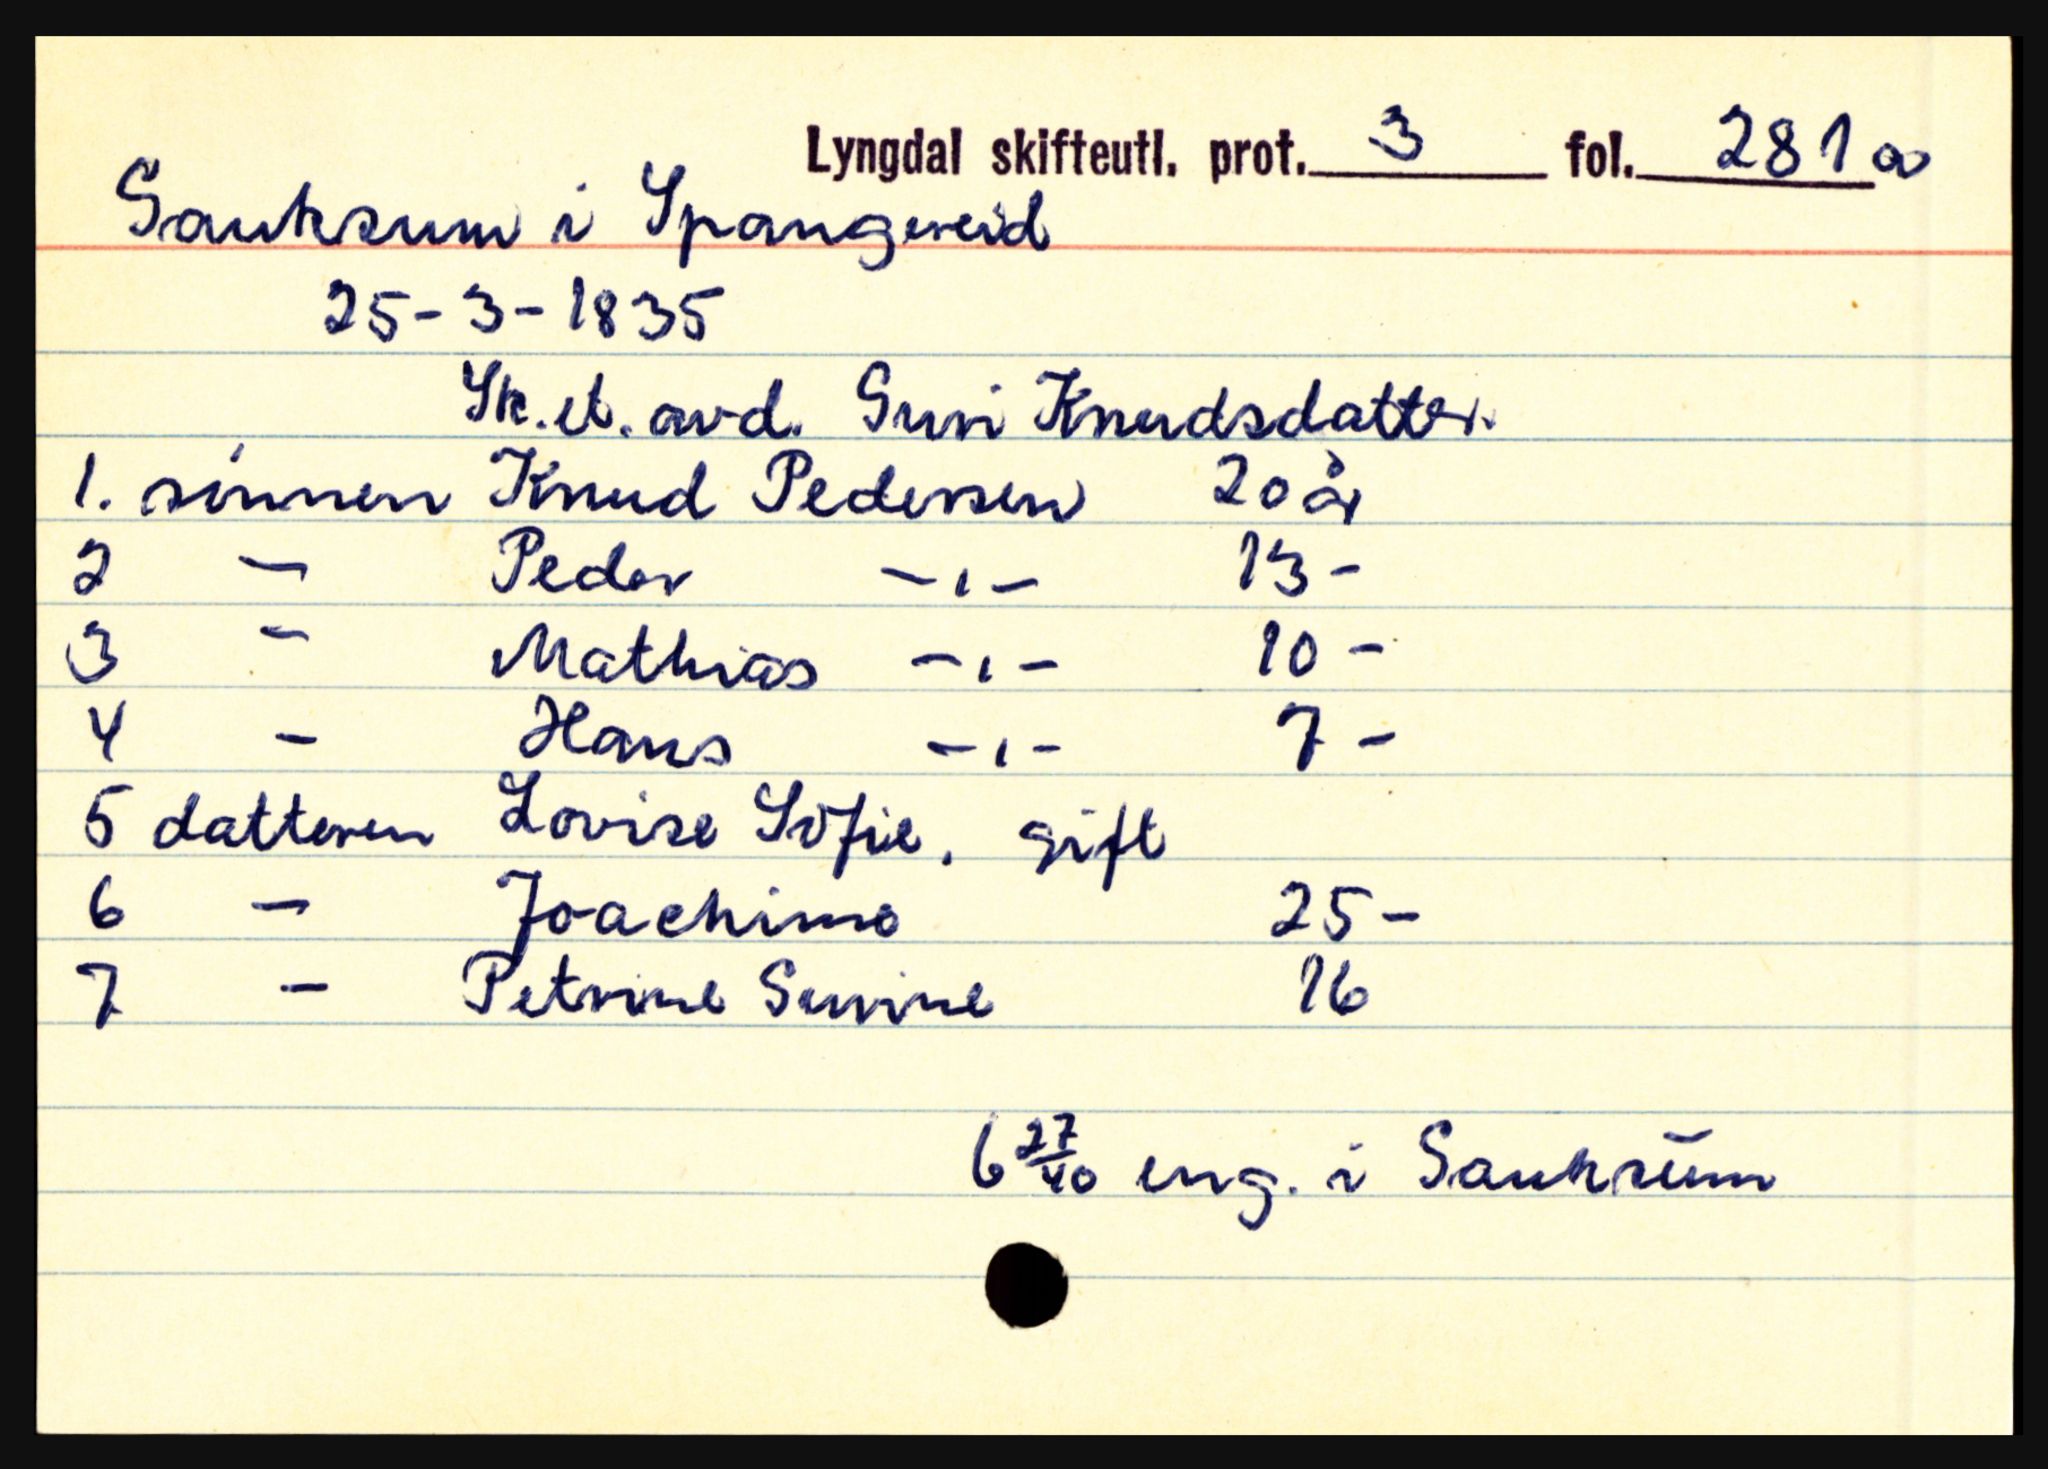 Lyngdal skifteutl. prot. 3 fol. 281a
Sauksum i Spangereid
25-3-1835
Sk. et. avd. Guri Knudsdatter.
1. sønnen Knud Pedersen 20 år
2 - Peder -"- 13 -
3 - Mathias -"- 10 -
4 - Hans -"- 7 -
5 datteren Lovise Sofie. gift
6 - Joachime 25 -
7 - Petrine Gurine 16
6 27/40 eng. i Sauksum